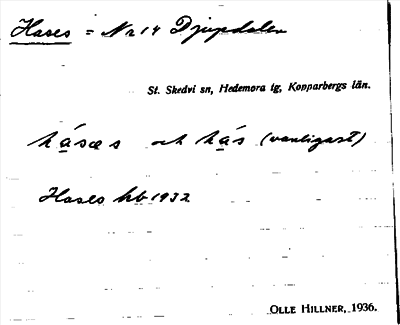 Hases = Nr 14 Djupdalen
St. Skedvi sn, Hedemora tg, Kopparbergs län.
hásæs och hás (vanligast)
Hases hb 1932
OLLE HILLNER, 1936.